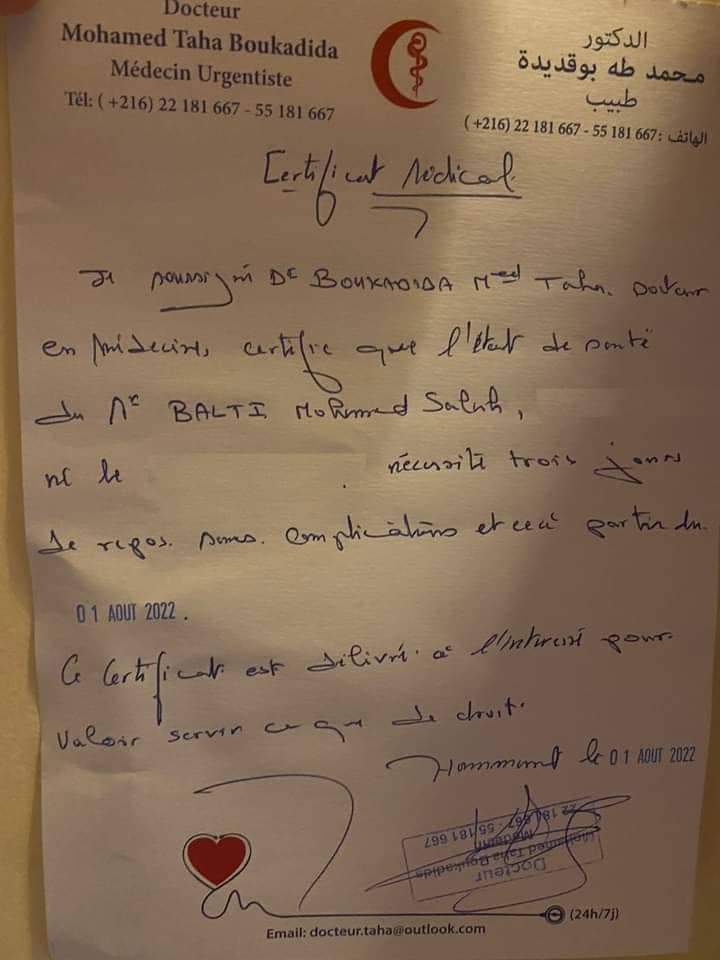 Docteur
Mohamed Taha Boukadida
Médecin Urgentiste
Tél: ( +216) 22 181 667 - 55 181 667
الدكتور
محمد طه بوقديدة
طبيب
الهاتف :667 181 55 - 667 181 22 (216+ )
Certificat Médical
Je soussigné Dr BOUKADIDA Med Taha. Docteur
en Médecine, certifie que l'état de santé
du Mr BALTI Mohamed Salah,
né le
. nécessite trois jours
de repos. sans. complications et ceci partir du.
01 AOUT 2022.
Ce Certificat est délivré à l'intéressé pour
valoir servir ce que de droit.
Hammamet le 01 AOUT 2022
22 181 667 - 55 181 667
Médecin
Mohamed Taha Boukadida
Docteur
(24h/7j)
Email: docteur.taha@outlook.com